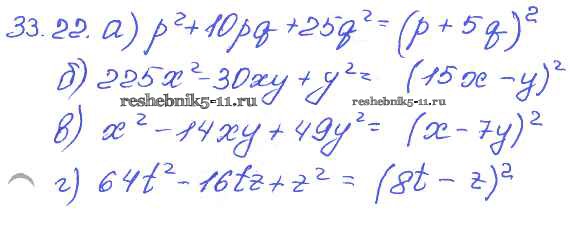 33.22. а) p² + 10pq + 25q² = (p + 5q)²
б) 225x² - 30xy + y² = (15x - y)²
reshebnik5-11.ru reshebnik5-11.ru
в) x² - 14xy + 49y² = (x - 7y)²
г) 64t² - 16tz + z² = (8t - z)²